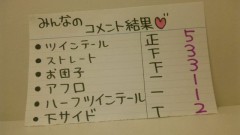 みんなの
コメント結果♡
• ツインテール 正 5
• ストレート 下 3
• お団子 下 3
• アフロ 一 1
• ハーフツインテール 一 1
• 下サイド T 2